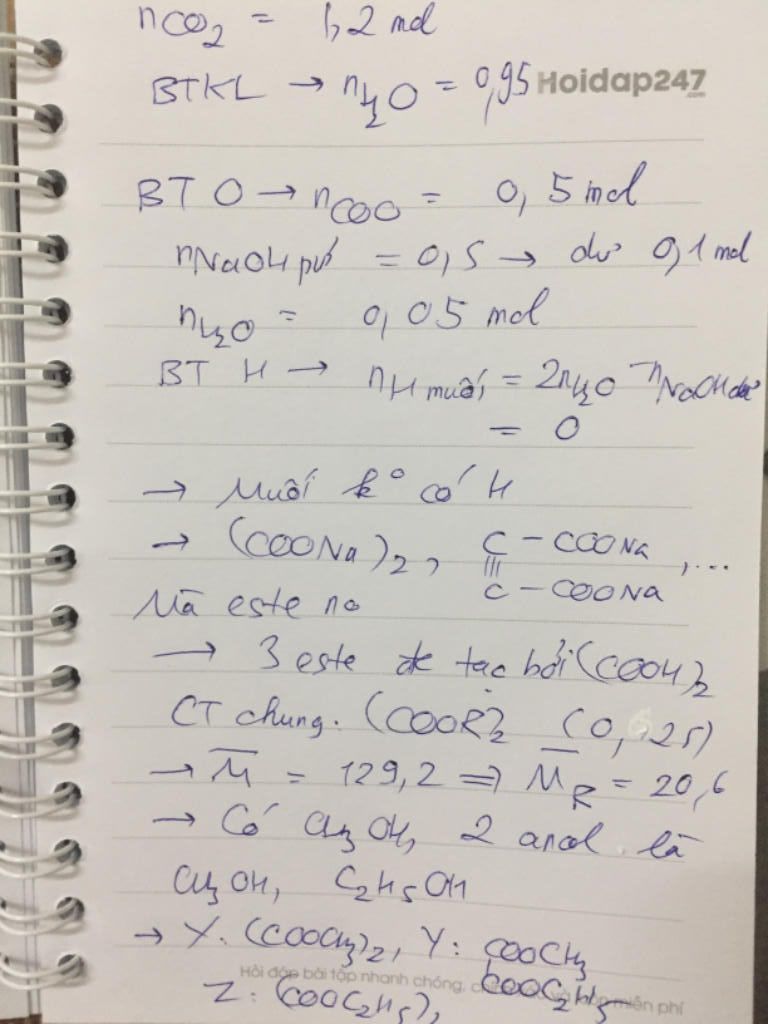 nCO₂ = 1,2 mol
BTKL → nH₂O = 0,95
Hoidap247
.com
BT O → nCOO = 0,5 mol
nNaOH pứ = 0,5 → dư 0,1 mol
nH₂O = 0,05 mol
BT H → nH muối = 2nH₂O - nNaOH dư
= 0
→ Muối k° có H
→ (COONa)₂, C - COONa ,...
|||
C - COONa
Mà este no
→ 3 este tạo bởi (COOH)₂
CT chung. (COOR)₂ (0,25)
→ M̅ = 129,2 ⇒ M̅R = 20,6
→ Có CH₃OH, 2 ancol là
CH₃OH, C₂H₅OH
→ Y: (COOCH₃)₂, Y: COOCH₃
COOC₂H₅
Hỏi đáp bài tập nhanh chóng, miễn phí
Z: (COOC₂H₅)₂